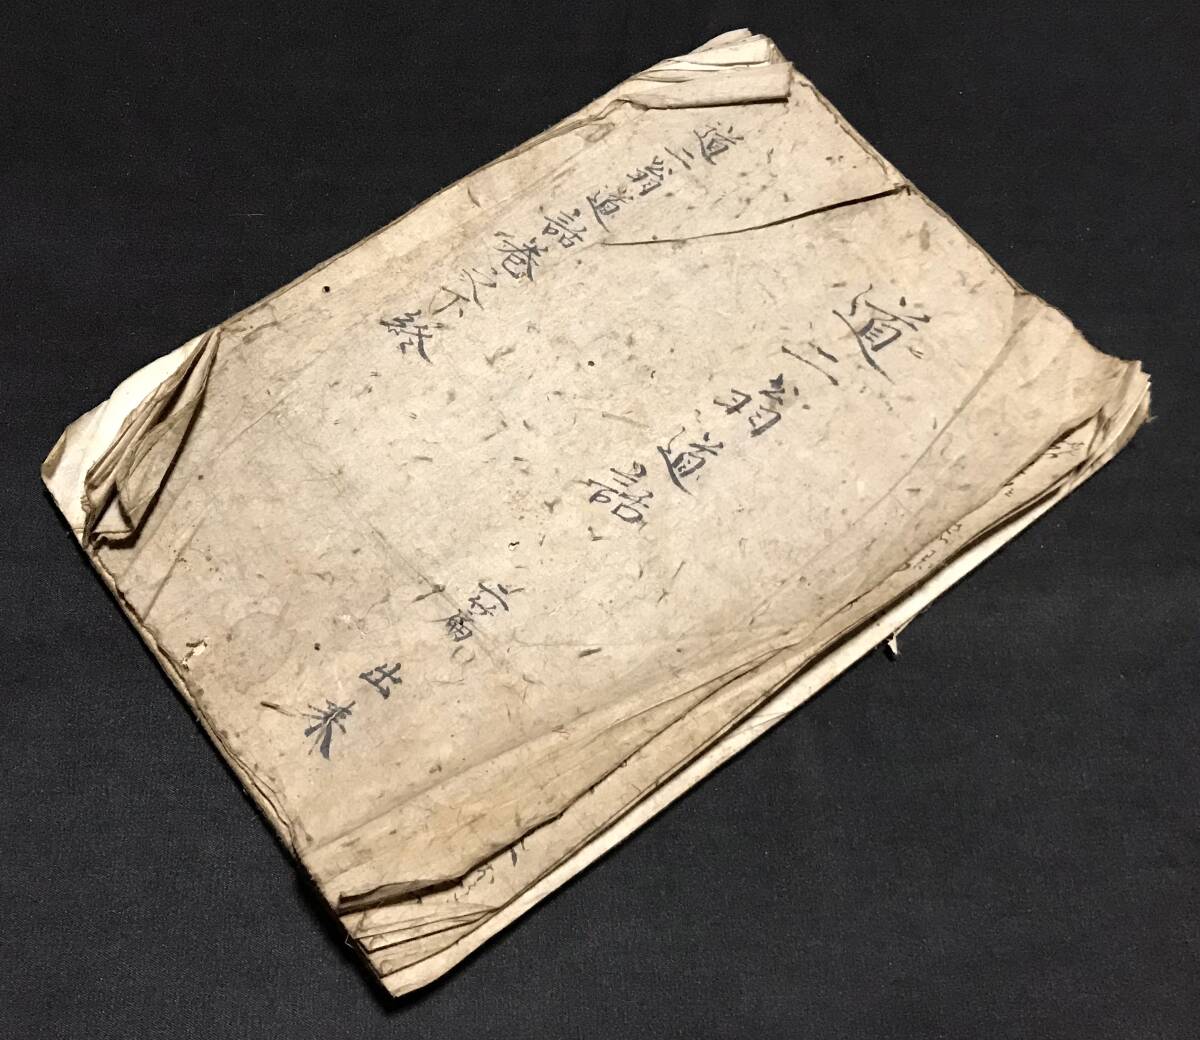 道二翁道話
出来
道二翁道話巻之下終